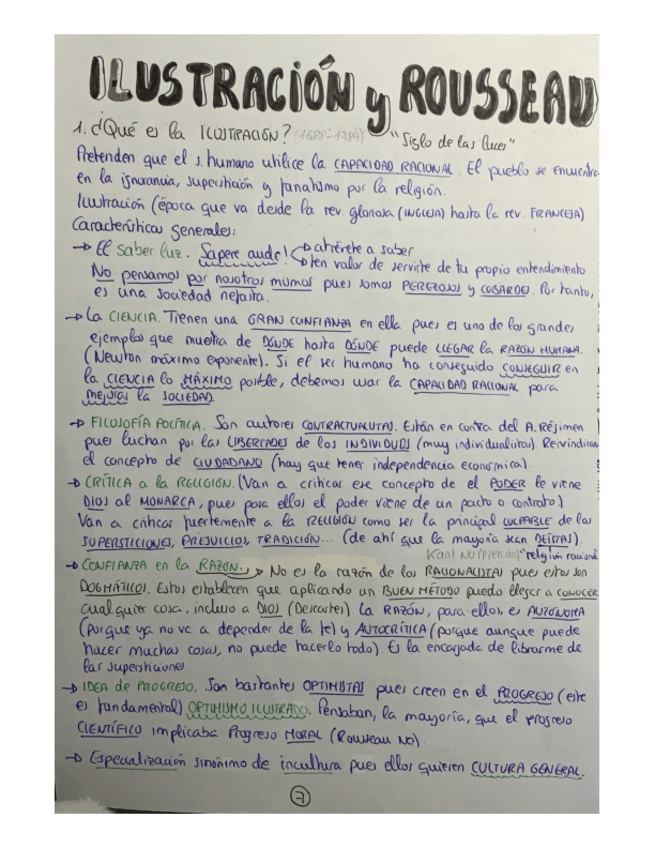 ILUSTRACIÓN y ROUSSEAU
1. ¿Qué es la ILUSTRACIÓN? (1688-1789) "Siglo de las luces"
Pretenden que el s. humano utilice la CAPACIDAD RACIONAL. El pueblo se encuentra
en la ignorancia, superstición y fanatismo por la religión.
Ilustración (época que va desde la rev. gloriosa (INGLESA) hasta la rev. FRANCESA)
Características generales:
→ El saber luz. Sapere aude! → atrévete a saber
→ ten valor de servirte de tu propio entendimiento
No pensamos por nosotros mismos pues somos PEREZOSOS y COBARDES. Por tanto,
es una sociedad nefasta.
→ La CIENCIA. Tienen una GRAN CONFIANZA en ella pues es uno de los grandes
ejemplos que muestra de DÓNDE hasta DÓNDE puede LLEGAR la RAZÓN HUMANA.
(Newton máximo exponente). Si el ser humano ha conseguido CONSEGUIR en
la CIENCIA lo MÁXIMO posible, debemos usar la CAPACIDAD RACIONAL para
mejorar la SOCIEDAD.
→ FILOSOFÍA POLÍTICA. Son autores CONTRACTUALISTAS. Están en contra del A. Régimen
pues luchan por las LIBERTADES de los INDIVIDUOS (muy individualistas). Reivindican
el concepto de CIUDADANO (hay que tener independencia económica).
→ CRÍTICA a la RELIGIÓN. (Van a criticar ese concepto de el PODER le viene
DIOS al MONARCA, pues para ellos el poder viene de un pacto o contrato.)
Van a criticar fuertemente a la RELIGIÓN como ser la principal CULPABLE de las
SUPERSTICIONES, PREJUICIOS, TRADICIÓN... (de ahí que la mayoría sean DEÍSTAS).
Kant NO (pietista) "religión racional"
→ CONFIANZA en la RAZÓN. → No es la razón de los RACIONALISTAS pues estos son
DOGMÁTICOS. Estos establecen que aplicando un BUEN MÉTODO puedo llegar a CONOCER
cualquier cosa, incluso a DIOS (Descartes). La RAZÓN, para ellos, es AUTÓNOMA
(porque ya no va a depender de la fe) y AUTOCRÍTICA (porque aunque puede
hacer muchas cosas, no puede hacerlo todo). Es la encargada de librarme de
las supersticiones.
→ IDEA de PROGRESO. Son bastantes OPTIMISTAS pues creen en el PROGRESO (este
es fundamental) OPTIMISMO ILUSTRADO. Pensaban, la mayoría, que el progreso
CIENTÍFICO implicaba Progreso MORAL (Rousseau NO).
→ Especialización sinónimo de incultura pues ellos quieren CULTURA GENERAL.
7